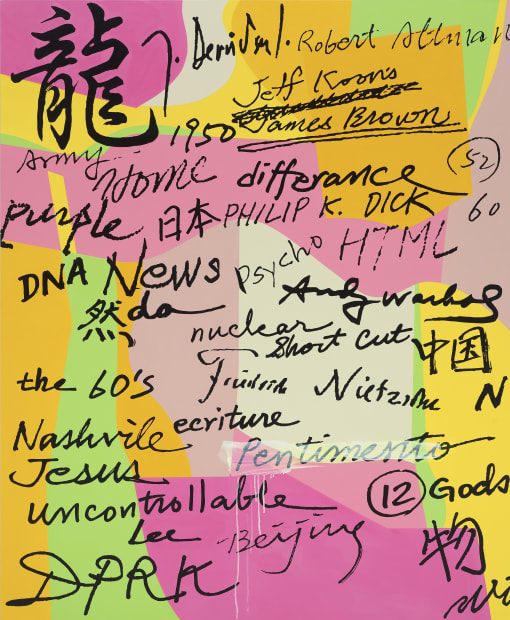 龍 J. Derrida. Robert Altman
Jeff Koons
James Brown
1950
Army
Home differance 52
Purple 日本 PHILIP K. DICK 60
Psycho HTML
DNA News
Andy Warhol
然 da
nuclear
short cut 中国
the 60's Friedrich Nietzsche N
Nashvile ecriture
Pentimento
Jesus
uncontrollable 12 Gods
Lee Beijing 物
DPRK